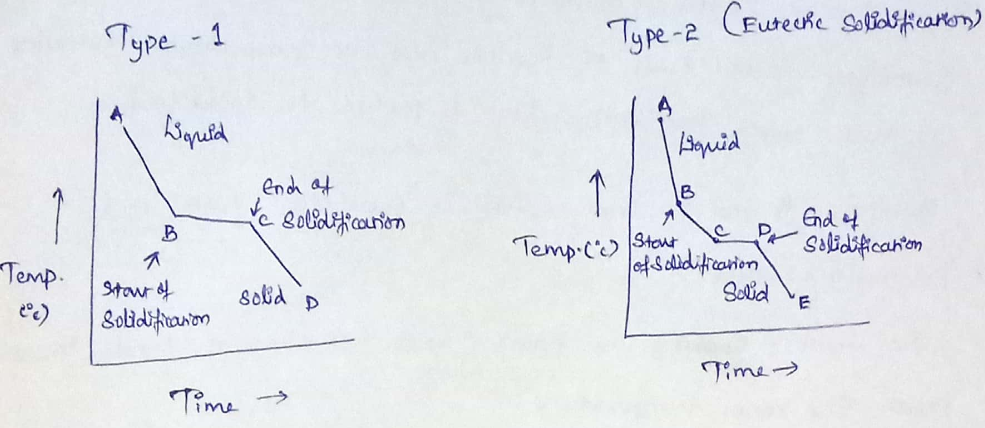 Type - 1
A
Liquid
End of
C Solidification
B
Start of
Solidification
Solid
D
Temp.
(°c)
Time →
Type-2 (Eutectic Solidification)
A
Liquid
B
Start
of Solidification
C
D
End of
Solidification
Solid
E
Temp.(°c)
Time →